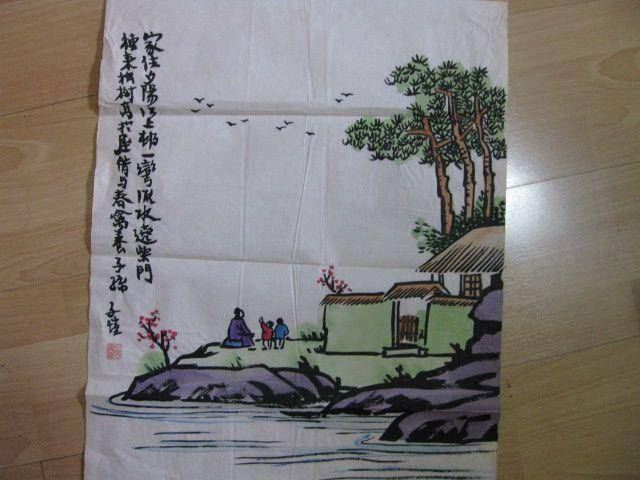 家住夕陽江上邨一彎流水遶柴門
種来松樹高於屋借与春禽養子孫
子愷